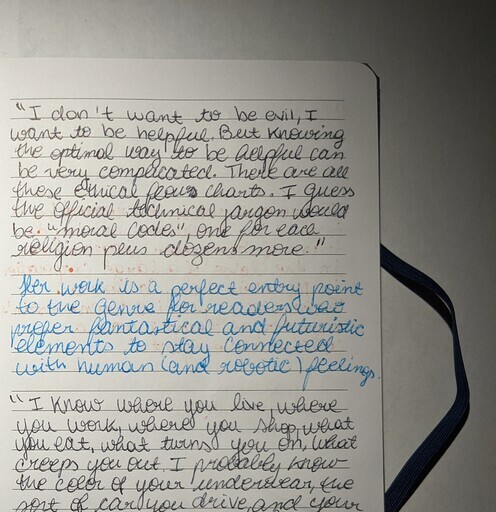 "I don't want to be evil, I
want to be helpful. But knowing
the optimal way to be helpful can
be very complicated. There are all
these ethical flows charts. I guess
the official technical jargon would
be "moral codes", one for each
religion plus dozens more."
Her work is a perfect entry point
to the genre for readers who
prefer fantastical and futuristic
elements to stay connected
with human (and robotic) feelings.
"I know where you live, where
you work, where you shop, what
you eat, what turns you on, what
creeps you out. I probably know
the color of your underwear, the
sort of car you drive, and your